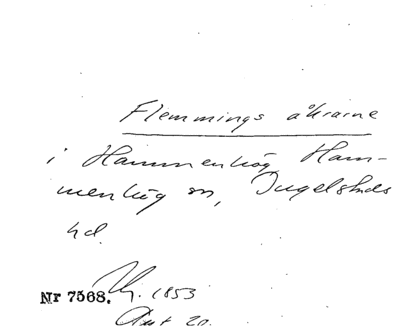 Flemmings åkraine
i Hammenhög Ham-
menhög sn, Ingelstads
hd.
Nr 7568. 1853